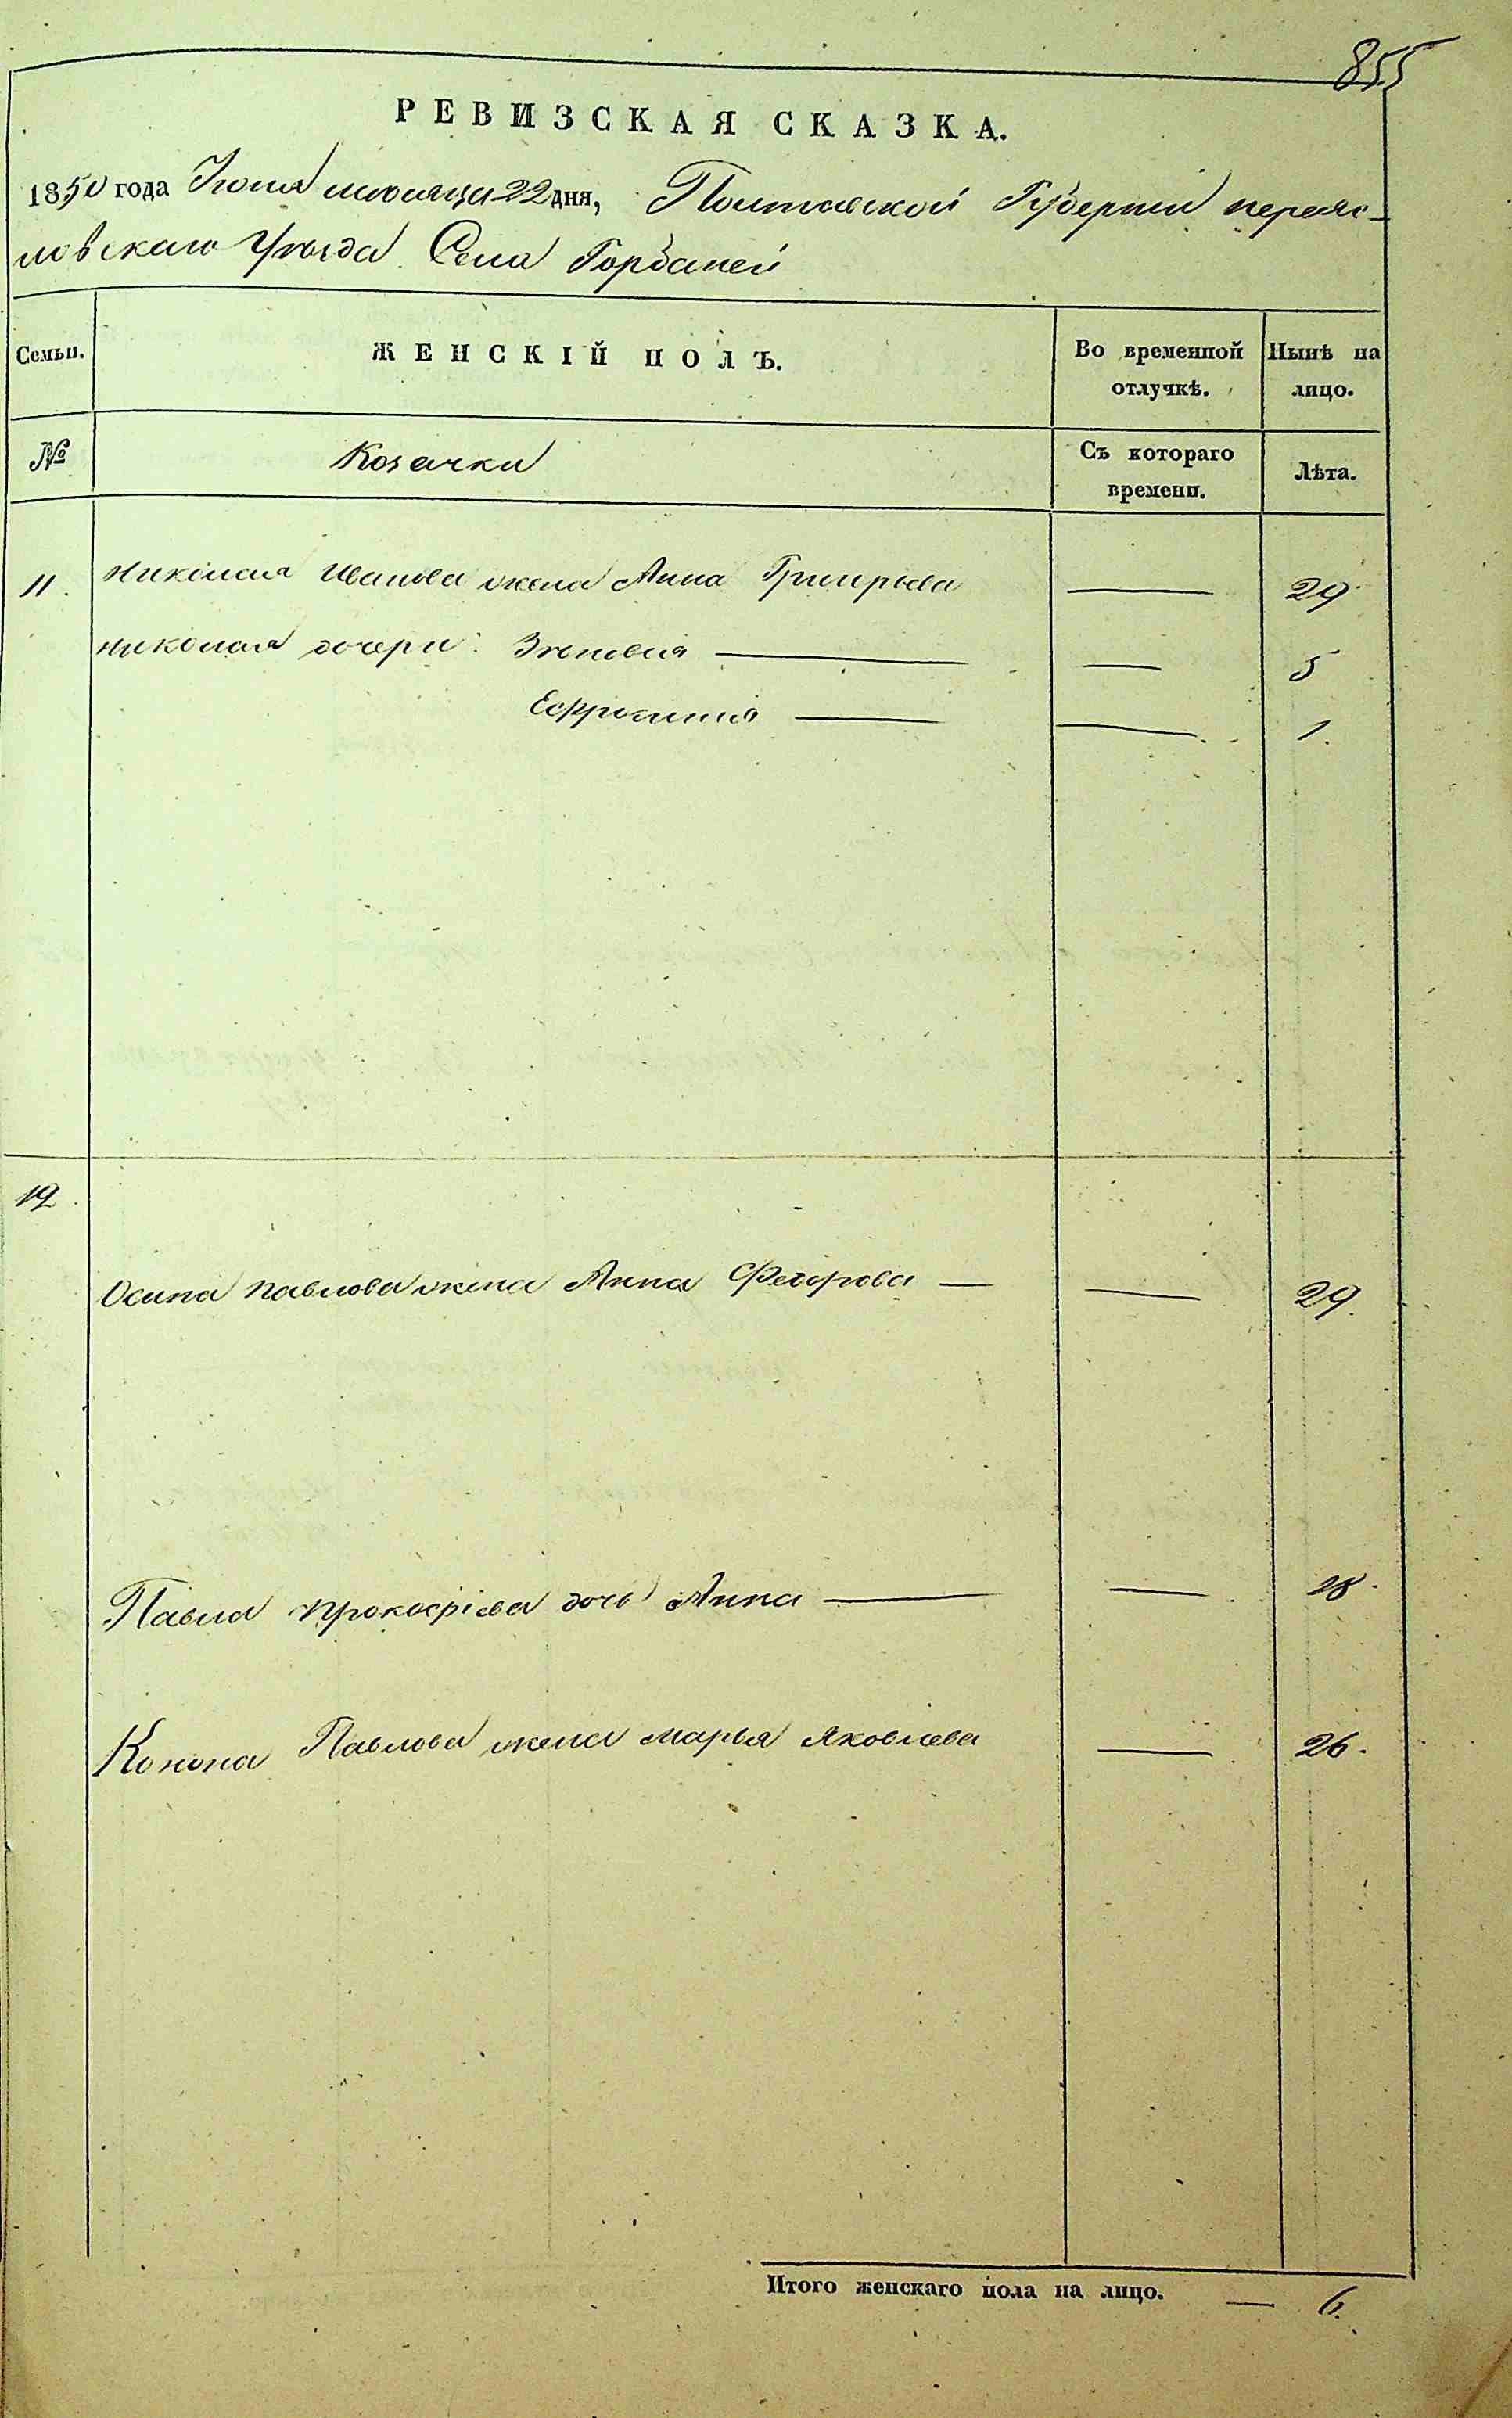 855
РЕВИЗСКАЯ СКАЗКА.
1850 года Июня месяца 22 дня, Полтавской Губернии переяс-
ловскаго Уезда Села Горбаней
Семьи. ЖЕНСКІЙ ПОЛЪ. Во временной отлучкѣ. Нынѣ на лицо.
№ Козачки Съ котораго времени. Лѣта.
11. Николая Иванова жена Анна Григорьева — 29
Николая дочери: Зѣновия — — 5
Ефросиния — — 1.
12.
Осипа Павлова жена Анна Федорова — — 29.
Павла Прокофіева дочь Анна — — 18.
Конона Павлова жена Марья Яковлева — 26.
Итого женскаго пола на лицо. — 6.